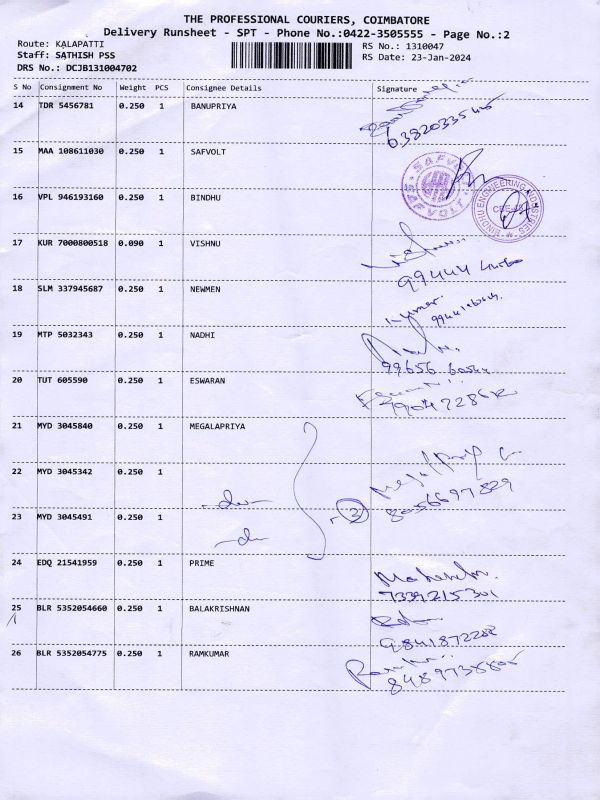 THE PROFESSIONAL COURIERS, COIMBATORE
Delivery Runsheet - SPT - Phone No.:0422-3505555 - Page No.:2
Route: KALAPATTI
RS No.: 1310047
Staff: SATHISH PSS
RS Date: 23-Jan-2024
DRS No.: DCJB131004702
S No Consignment No Weight PCS Consignee Details Signature
14 TDR 5456781 0.250 1 BANUPRIYA
15 MAA 108611030 0.250 1 SAFVOLT
SAFVOLT
SAFVOLT
16 VPL 946193160 0.250 1 BINDHU
BINDHU ENGINEERING INDUSTRIES
17 KUR 7000800518 0.090 1 VISHNU
99444
18 SLM 337945687 0.250 1 NEWMEN
19 MTP 5032343 0.250 1 NADHI
99656
20 TUT 605590 0.250 1 ESWARAN
21 MYD 3045840 0.250 1 MEGALAPRIYA
22 MYD 3045342 0.250 1
8056697829
23 MYD 3045491 0.250 1
3
24 EDQ 21541959 0.250 1 PRIME
7339215301
25 BLR 5352054660 0.250 1 BALAKRISHNAN
26 BLR 5352054775 0.250 1 RAMKUMAR